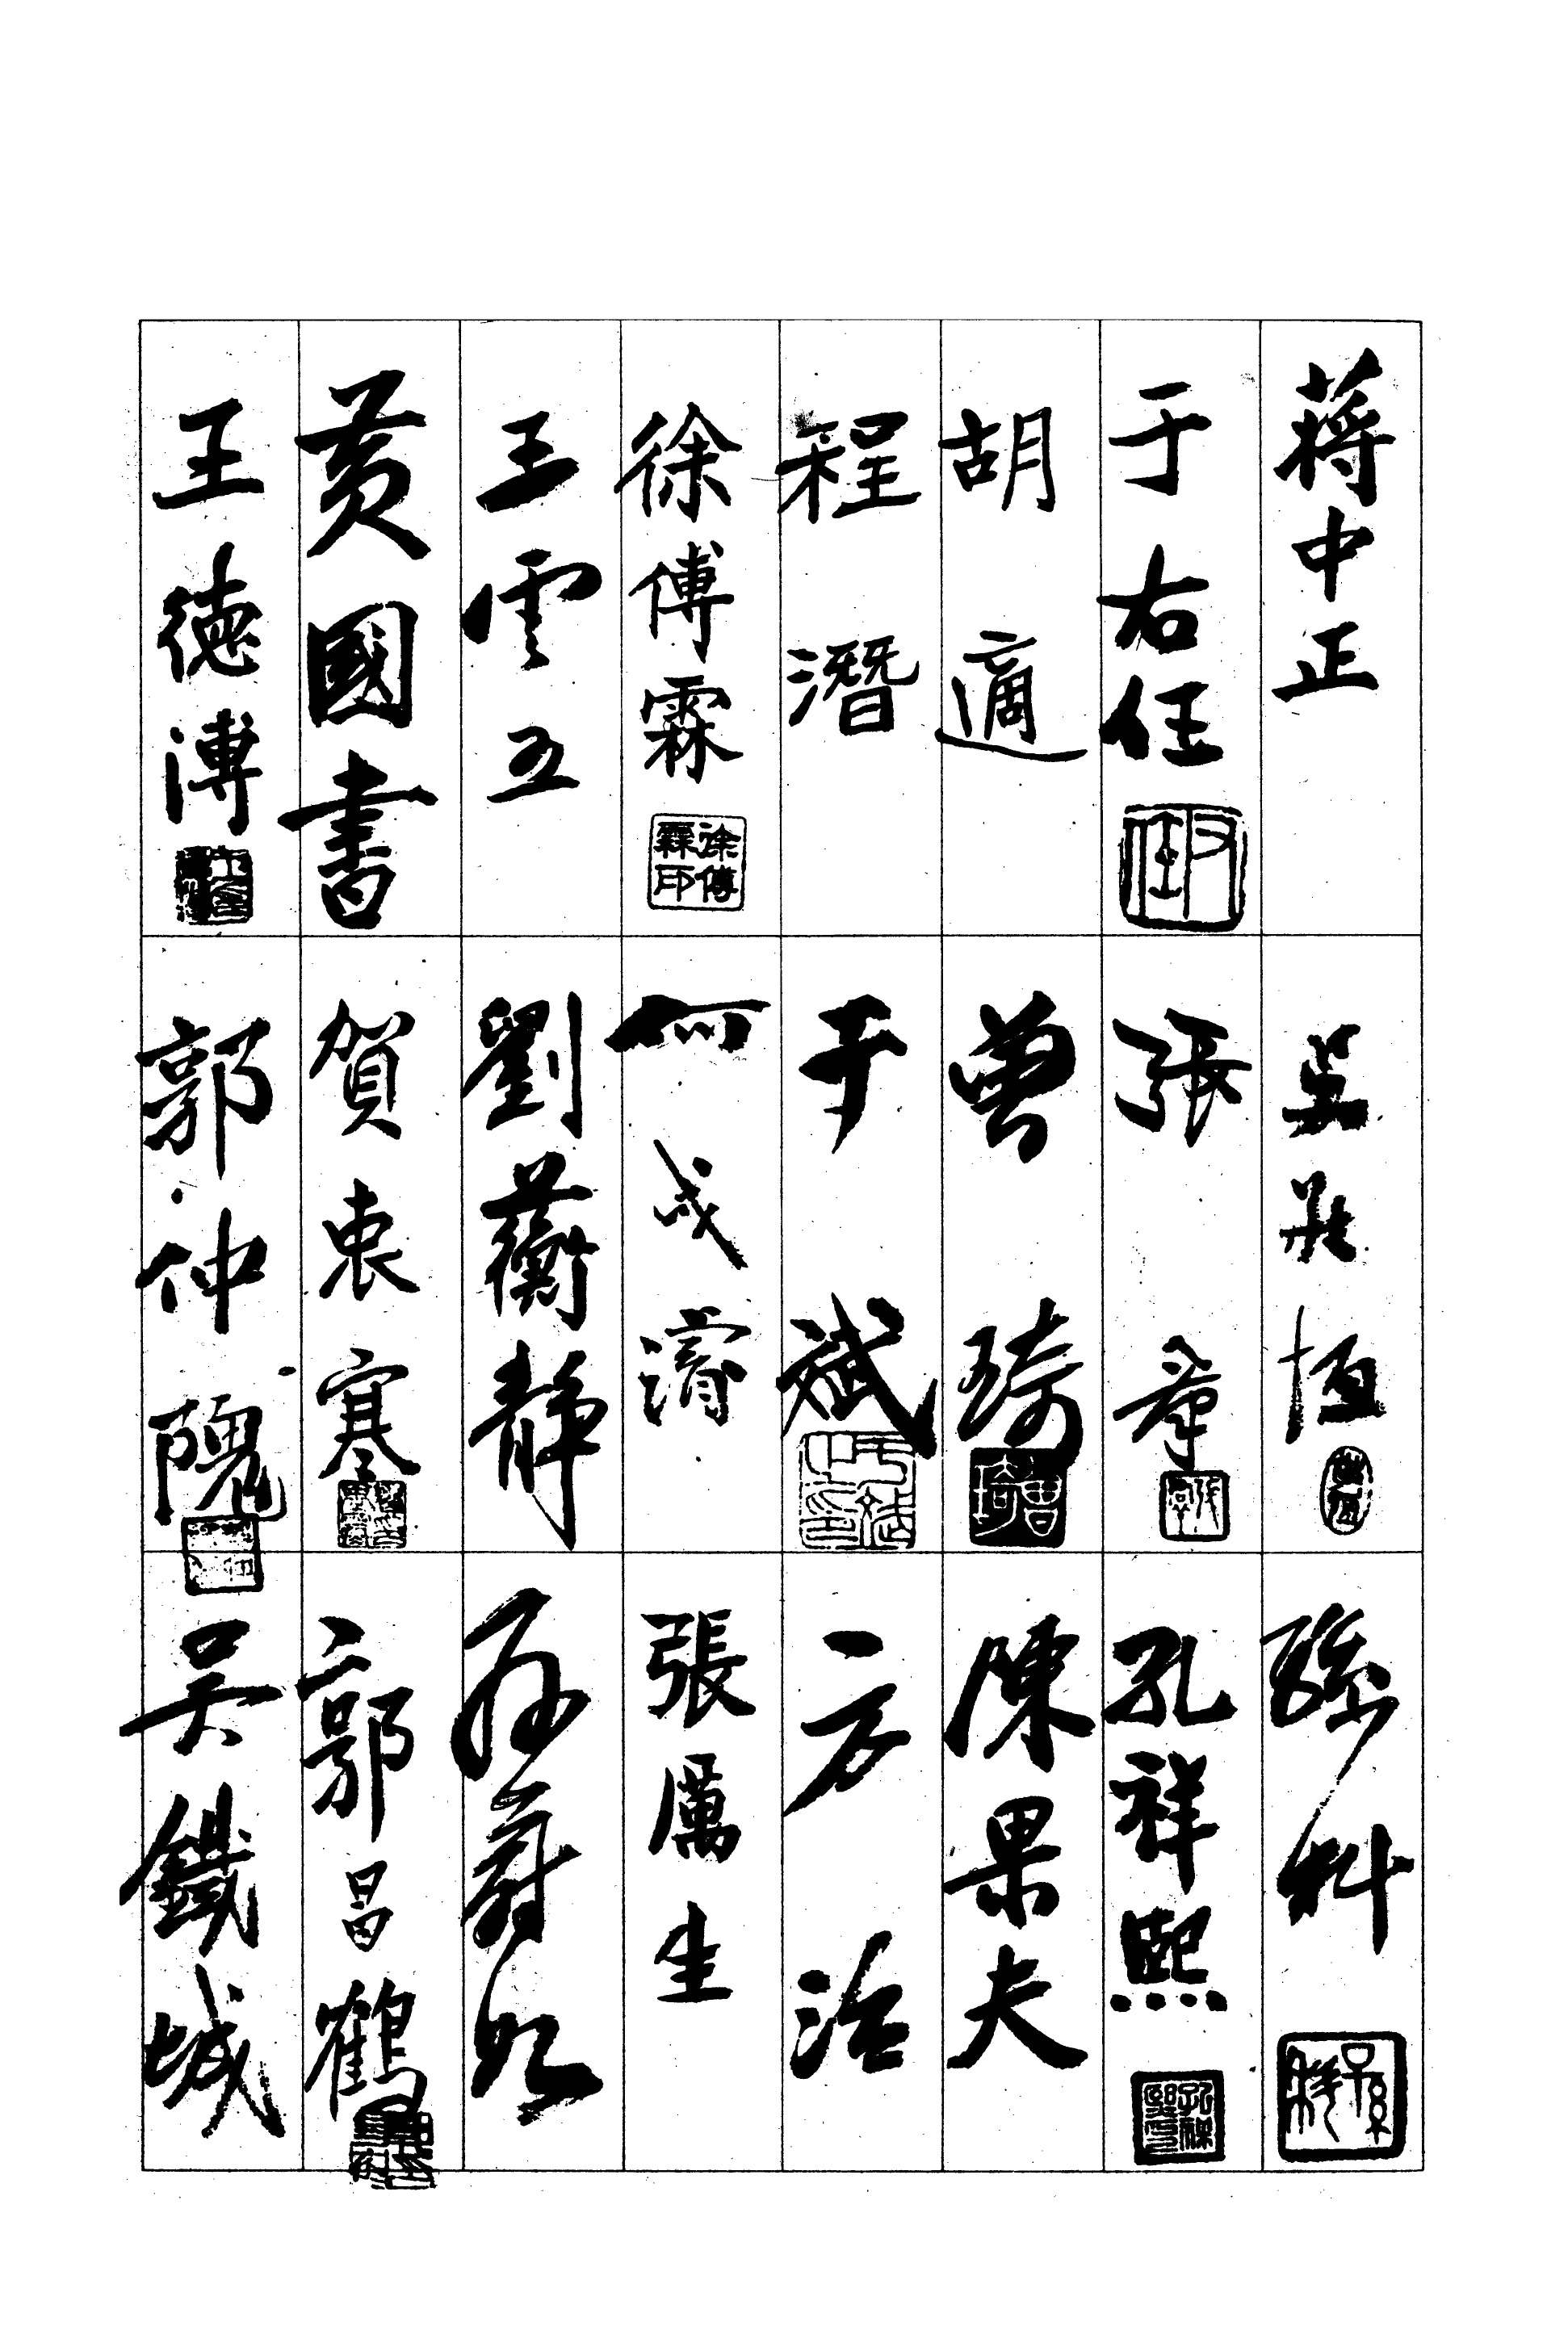 蔣中正
吳敬恆
孫科
于右任
張羣
孔祥熙
胡適
曾琦
曾琦
陳果夫
程潛
于斌
方治
徐傅霖
徐傅霖印
何成濬
張厲生
王雲五
劉蘅靜
孫蔚如
黃國書
賀衷寒
郭昌鶴
王德溥
郭仲隗
吳鐵城